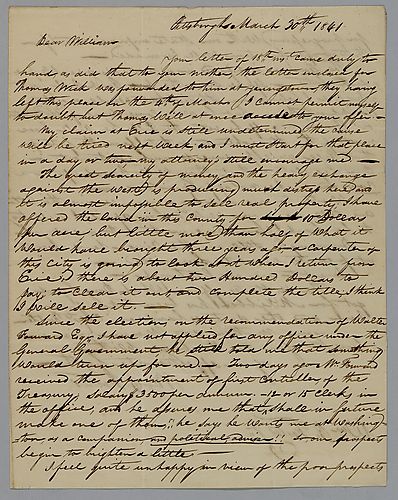 Pittsburgh March 30th 1841
Dear William
Your letter of 18th inst. came duly to
hand as did that to your mother, the letter inclosed for
Thomas Wick was forwarded to him at youngstown they having
left this place on the 4th of March I cannot permit myself
to doubt but Thomas Will at once accede to your offer—
My claim at Erie is still undetermined the cause
will be tried next week and I must start for that place
in a day or two my attorneys still encourage me —
The great scarcity of money and the heavy exchange
against the west is producing much distress here and
it is almost impossible to sell real property, I have
offered the land in this County for 10 Dollars
per acre, but little more than half of what it
would have brought three years ago a carpenter of
this City is going to look at it when I return from
Erie, there is about two Hundred Dollars to
pay, to clear it out and complete the title, I think
I will sell it. —
Since the election, on the recommendation of Walter
Forward Esqr. I have not applied for any office under the
General Government he told me that something
would turn up for me — Two days ago Mr. Forward
received the appointment of first Controller of the
Treasury, Salary 3500 per annum — 12 or 15 clerks in
the office, and he assures me that I shall in future
make one of them, he says he wants me at Washing-
ton as a companion and political adviser!! so our prospects
begin to brighten a little —
I feel quite unhappy in view of the poor prospects